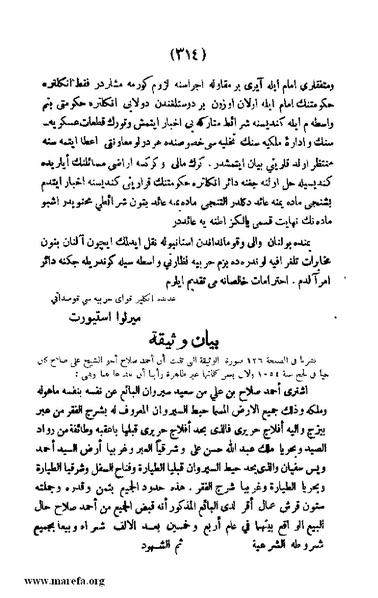 (٣١٤)
ومتفقلری امام ایله آیری بر مقاوله اجراسنه لزوم كورمه مشلردر فقط انكلتره
حكومتنك امام ایله اولان اوزون بر دوستلغندن دولایی انكلتره حكومتی بتم
واسطه م ایله كندیسنه شرائط متاركه یی اخبار ایتمش وتورك قطعات عسكریه
سنك وادارهٔ ملكیه سنك تخلیه سی خصوصنده هر درلو معاونتی اعطا ایتمه سنه
منتظر اولد قلرینی بیان ایتمشدر. كرك مالی و كركسه اراضی مسائلنك ایلریده
كندیسیله حل اولنه جغنه دائر انكلتره حكومتنك قرارینی كندیسنه اخبار ایتدم
بشنجی ماده یمنه عائد دكلدر التنجی ماده یمنه عائد بتون شرائطی محتویدر اشبو
ماده نك نهایت قسمی یالكز اطنه یه عائددر
یمنده بولنان والی وقومانداندن استانبوله نقل ایدلك ایچون آلنان بتون
مخابرات تلغرافیه لوندره ده بزم حربیه نظارتی واسطه سیله كوندریله جكنه دائر
امر آلدم. احترامات خالصانه می تقدیم ایلرم
عدنده انكلیز قوای حربیه سی قومندانی
میرلوا استیورت
بیان وثیقة
نشرنا فی الصفحة ١٢٦ صورة الوثیقة التی تثبت أن أحمد صلاح أخو الشیخ علی صلاح كان
حیا فی لحج سنة ١٠٥٤ ولأن بعض كلماتها غیر ظاهرة رأینا أن نعیدها هنا وهی :
اشتری أحمد صلاح بن علی من سعید صیروان البائع عن نفسه بنفسه ماهوله
وملكه وذلك جمیع الارض المسما حیط السیروان المعروف له بشرج الفقر من عبر
بیزج والیه أفلاج حریری فالذی یحد أفلاج حریری قبلیا باعقبه وطائفة من رواد
الصید وبحریا ملك عبد الله حسن علی وشرقیا العبر وغربیا أرض السید أحمد
ویس سفیان والذی یحد حیط السیروان قبلیا الطیارة وفناح السفل وشرقیا الطیارة
وبحریا الطیارة وغربیا شرج الفقر. هذه حدود الجمیع بثمن وقدره وجملته
ستون قرش عمال أقر لدی البائع المذكور أنه قبض الجمیع من أحمد صلاح حال
البیع الواقع بینهما فی عام أربع وخمسین بعد الالف شراء وبیعا بجمیع
شروطه الشرعیة ثم الشهود
www.marefa.org